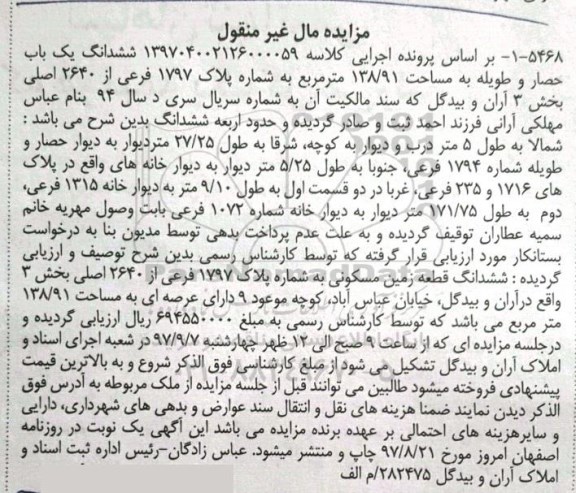 مزایده مال غیر منقول
۱-۵۴۶۸- بر اساس پرونده اجرایی کلاسه ۱۳۹۷۰۴۰۰۲۱۲۶۰۰۰۰۵۹ ششدانگ یک باب
حصار و طویله به مساحت ۱۳۸/۹۱ مترمربع به شماره پلاک ۱۷۹۷ فرعی از ۲۶۴۰ اصلی
بخش ۳ آران و بیدگل که سند مالکیت آن به شماره سریال سری د سال ۹۴ بنام عباس
مهلکی آرانی فرزند احمد ثبت و صادر گردیده و حدود اربعه ششدانگ بدین شرح می باشد :
شمالا به طول ۵ متر درب و دیوار به کوچه، شرقا به طول ۲۷/۲۵ متردیوار به دیوار حصار و
طویله شماره ۱۷۹۴ فرعی، جنوبا به طول ۵/۲۵ متر دیوار به دیوار خانه های واقع در پلاک
های ۱۷۱۶ و ۲۳۵ فرعی، غربا در دو قسمت اول به طول ۹/۱۰ متر به دیوار خانه ۱۳۱۵ فرعی،
دوم به طول ۱۷۱/۷۵ متر دیوار به دیوار خانه شماره ۱۰۷۳ فرعی بابت وصول مهریه خانم
سمیه عطاران توقیف گردیده و به علت عدم پرداخت بدهی توسط مدیون بنا به درخواست
بستانکار مورد ارزیابی قرار گرفته که توسط کارشناس رسمی بدین شرح توصیف و ارزیابی
گردیده : ششدانگ قطعه زمین مسکونی به شماره پلاک ۱۷۹۷ فرعی از ۲۶۴۰ اصلی بخش ۳
واقع درآران و بیدگل، خیابان عباس آباد، کوچه موعود ۹ دارای عرصه ای به مساحت ۱۳۸/۹۱
متر مربع می باشد که توسط کارشناس رسمی به مبلغ ۶۹۴۵۵۰۰۰۰ ریال ارزیابی گردیده و
درجلسه مزایده ای که از ساعت ۹ صبح الی ۱۲ ظهر چهارشنبه ۹۷/۹/۷ در شعبه اجرای اسناد و
املاک آران و بیدگل تشکیل می شود از مبلغ کارشناسی فوق الذکر شروع و به بالاترین قیمت
پیشنهادی فروخته میشود طالبین می توانند قبل از جلسه مزایده از ملک مربوطه به آدرس فوق
الذکر دیدن نمایند ضمنا هزینه های نقل و انتقال سند عوارض و بدهی های شهرداری، دارایی
و سایرهزینه های احتمالی بر عهده برنده مزایده می باشد این آگهی یک نوبت در روزنامه
اصفهان امروز مورخ ۹۷/۸/۲۱ چاپ و منتشر میشود. عباس زادگان-رئیس اداره ثبت اسناد و
املاک آران و بیدگل ۲۸۲۴۷۵/م الف